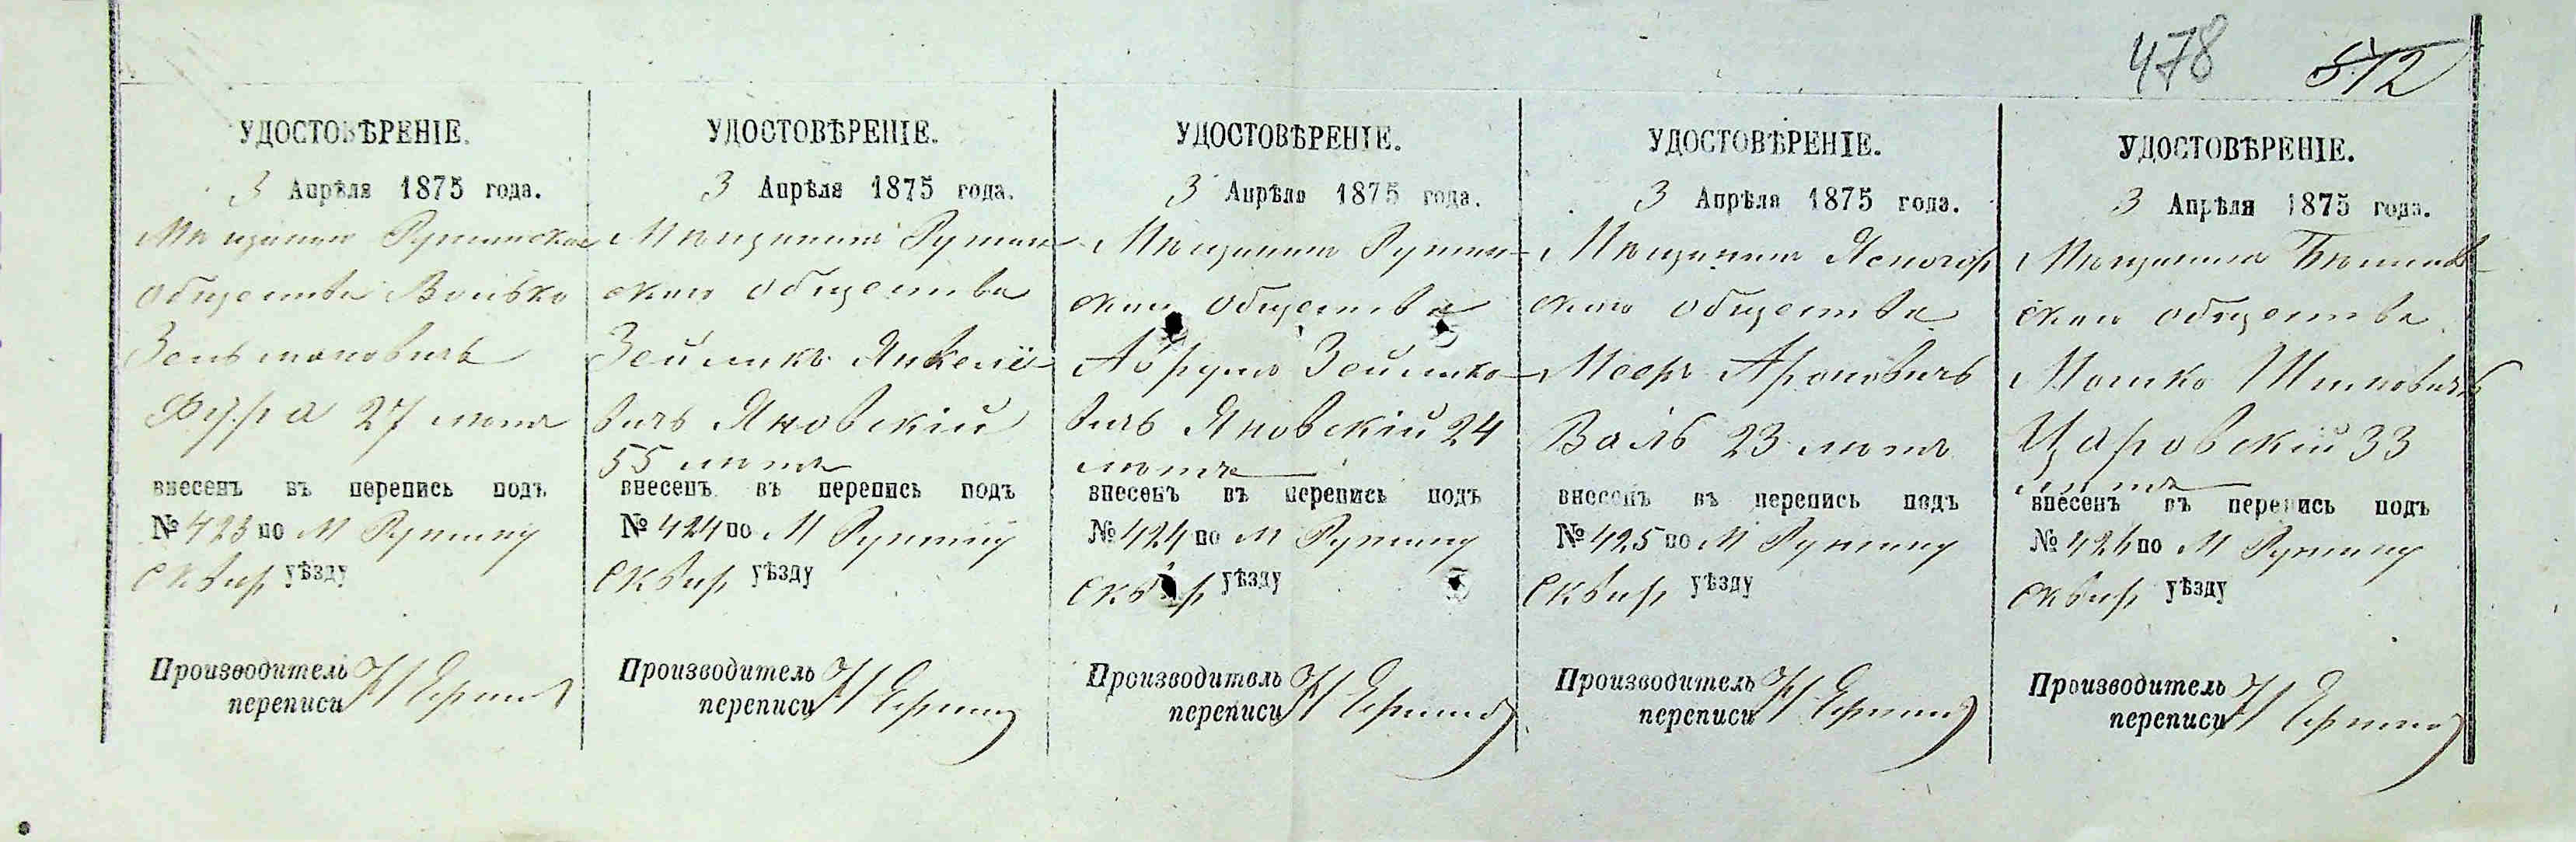 478 512
УДОСТОВѢРЕНІЕ.
3 Апрѣля 1875 года.
Мѣщанинъ Ружинскаго
общества Волько
Зельмановичъ
Фура 27 лѣтъ
внесенъ въ перепись подъ
№ 423 по М Ружину
Сквир уѣзду
Производитель
переписи
УДОСТОВѢРЕНІЕ.
3 Апрѣля 1875 года.
Мѣщанинъ Ружин
скаго общества
Зейликъ Янкеле
вичъ Яновскій
55 лѣтъ
внесенъ въ перепись подъ
№ 424 по М Ружину
Сквир уѣзду
Производитель
переписи
УДОСТОВѢРЕНІЕ.
3 Апрѣля 1875 года.
Мѣщанинъ Ружин
скаго общества
Абрумъ Зейлико
вичъ Яновскій 24
лѣтъ
внесенъ въ перепись подъ
№ 424 по М Ружину
Сквир уѣзду
Производитель
переписи
УДОСТОВѢРЕНІЕ.
3 Апрѣля 1875 года.
Мѣщанинъ Ясногор
скаго общества
Мееръ Ароновичъ
Валь 23 лѣтъ
внесенъ въ перепись подъ
№ 425 по М Ружину
Сквир уѣзду
Производитель
переписи
УДОСТОВѢРЕНІЕ.
3 Апрѣля 1875 года.
Мѣщанинъ
скаго общества
Мошко
Царовскій 33
лѣтъ
внесенъ въ перепись подъ
№ 426 по М Ружину
Сквир уѣзду
Производитель
переписи